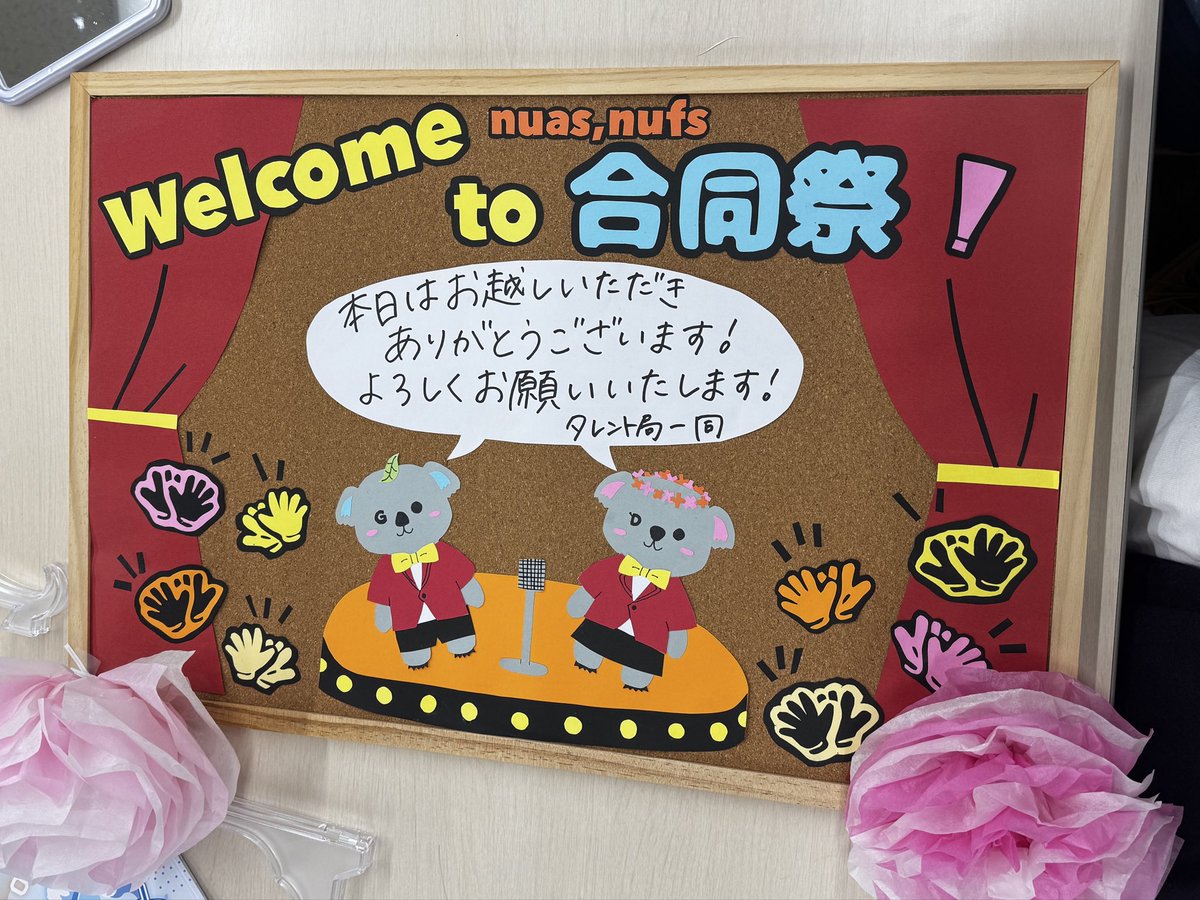 nuas,nufs
Welcome to 合同祭!
本日はお越しいただき
ありがとうございます!
よろしくお願いいたします!
タレント局一同
G
D